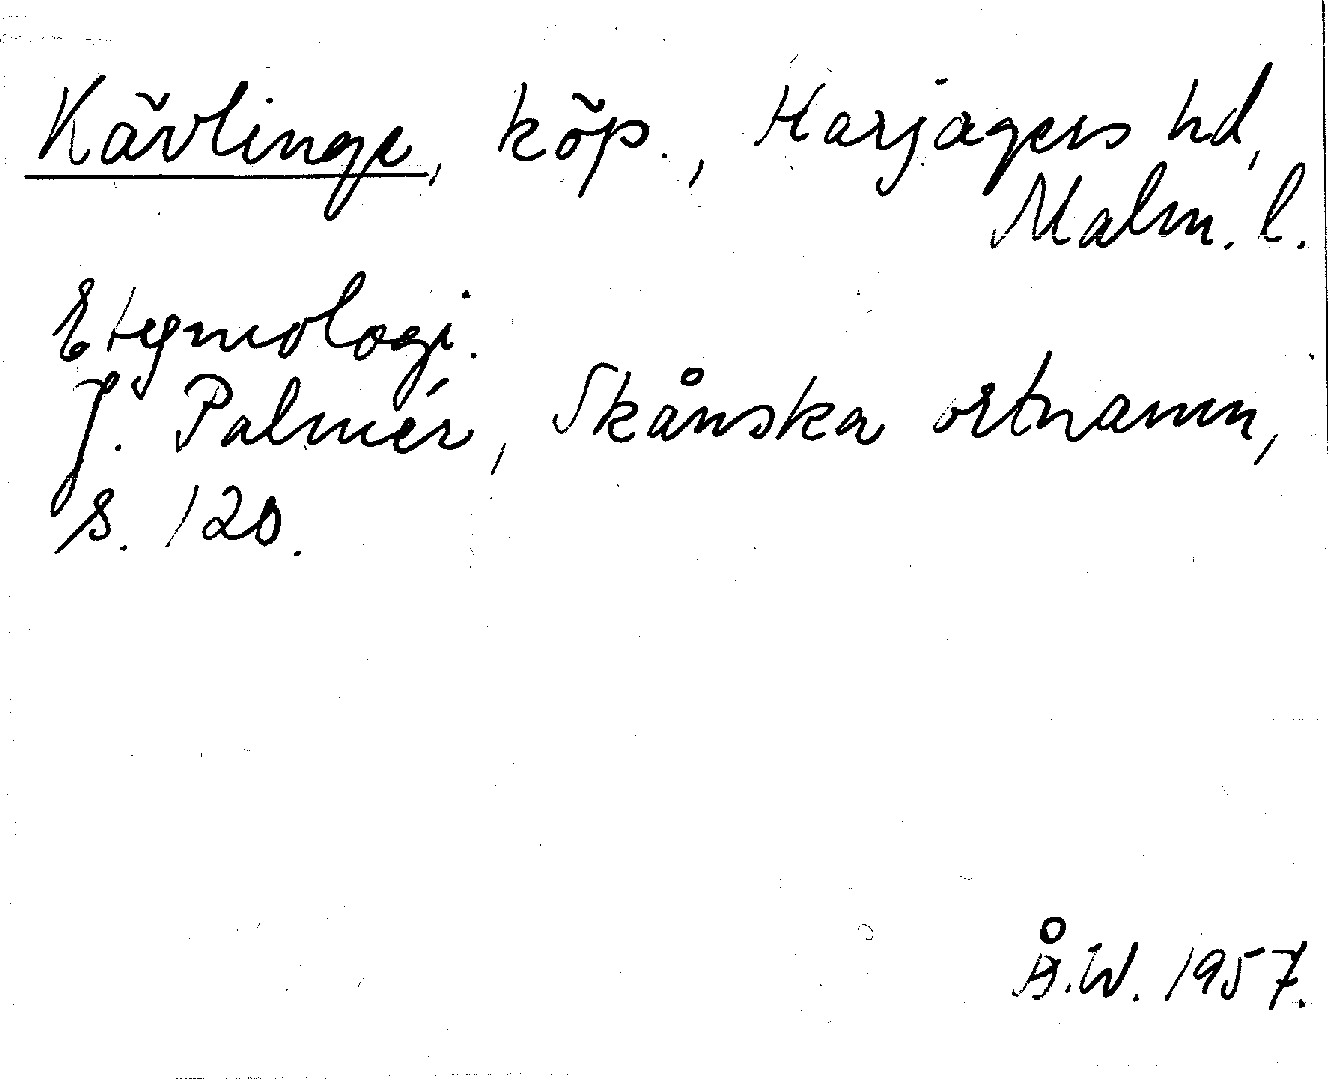 Kävlinge, köp., Harjagers hd,
Malm. l.
Etymologi.
J. Palmér, Skånska ortnamn,
s. 120.
Å.W. 1957.